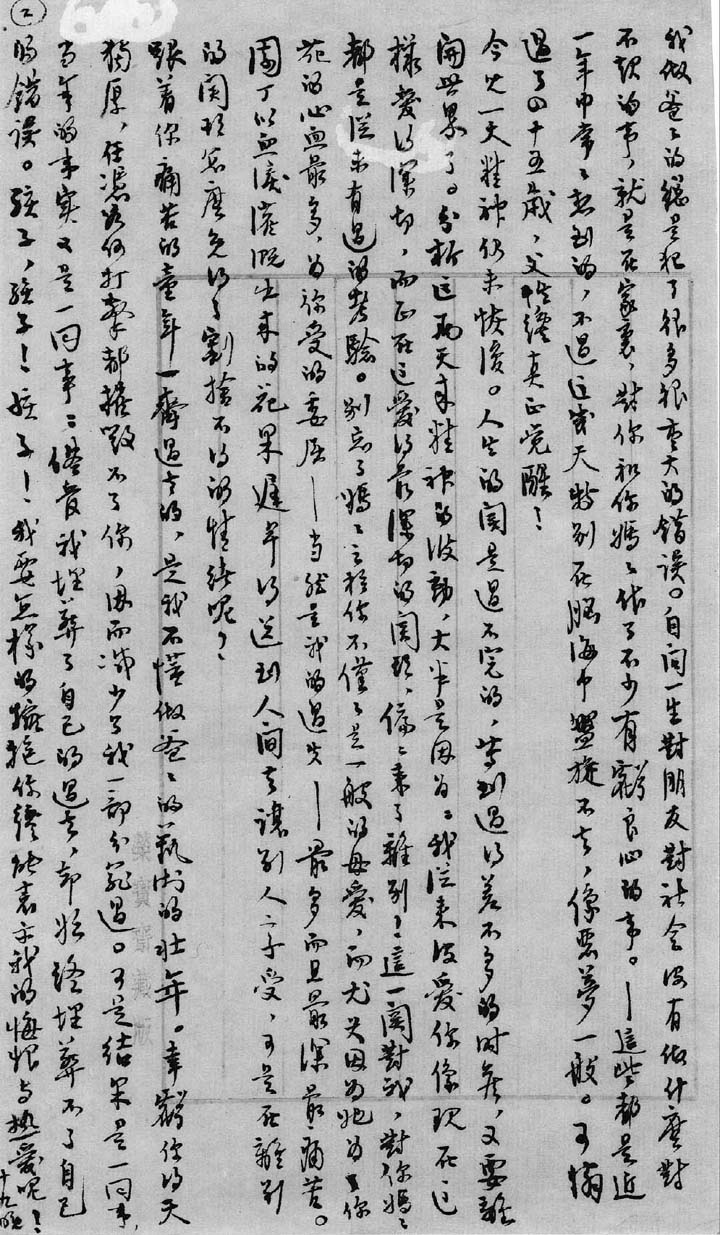 ②
我做爸爸的總是犯了很多很重大的錯誤。自問一生對朋友對社会没有做什麼對
不起的事,就是在家裏,對你和你媽媽作了不少有虧良心的事。—這些都是近
一年中常常想到的,不過這幾天特别在腦海中盤旋不去,像惡夢一般。可憐
過了四十五歲,父性纔真正覺醒!
今兒一天精神仍未恢復。人生的関是過不完的,等到過得差不多的時候,又要離
開世界了。分析這两天来精神的波動,大半是因為:我從来没愛你像現在這
樣愛得深切,而正在這愛得最深切的関頭,偏偏来了離别!這一関對我,對你媽媽
都是從来未有過的考驗。别忘了媽媽之於你不僅僅是一般的母愛,而尤其因為她為了你
花的心血最多,為你受的委屈—當然是我的過失—最多而且最深最痛苦。
園丁以血淚灌溉出来的花果遲早得送到人間去讓别人享受,可是在離别
的関頭怎麼免得了割捨不得的情緒呢?
跟着你痛苦的童年一齊過去的,是我不懂做爸爸的藝術的壯年。幸虧你得天
獨厚,任憑如何打擊都摧毁不了你,因而减少了我一部分罪過。可是結果是一回事,
當年的事實又是一回事:儘管我埋葬了自己的過去,却始終埋葬不了自己
的錯誤。孩子,孩子!孩子!我要怎樣的擁抱你纔能表示我的悔恨与热愛呢!
十九晚
榮寶齋藏版